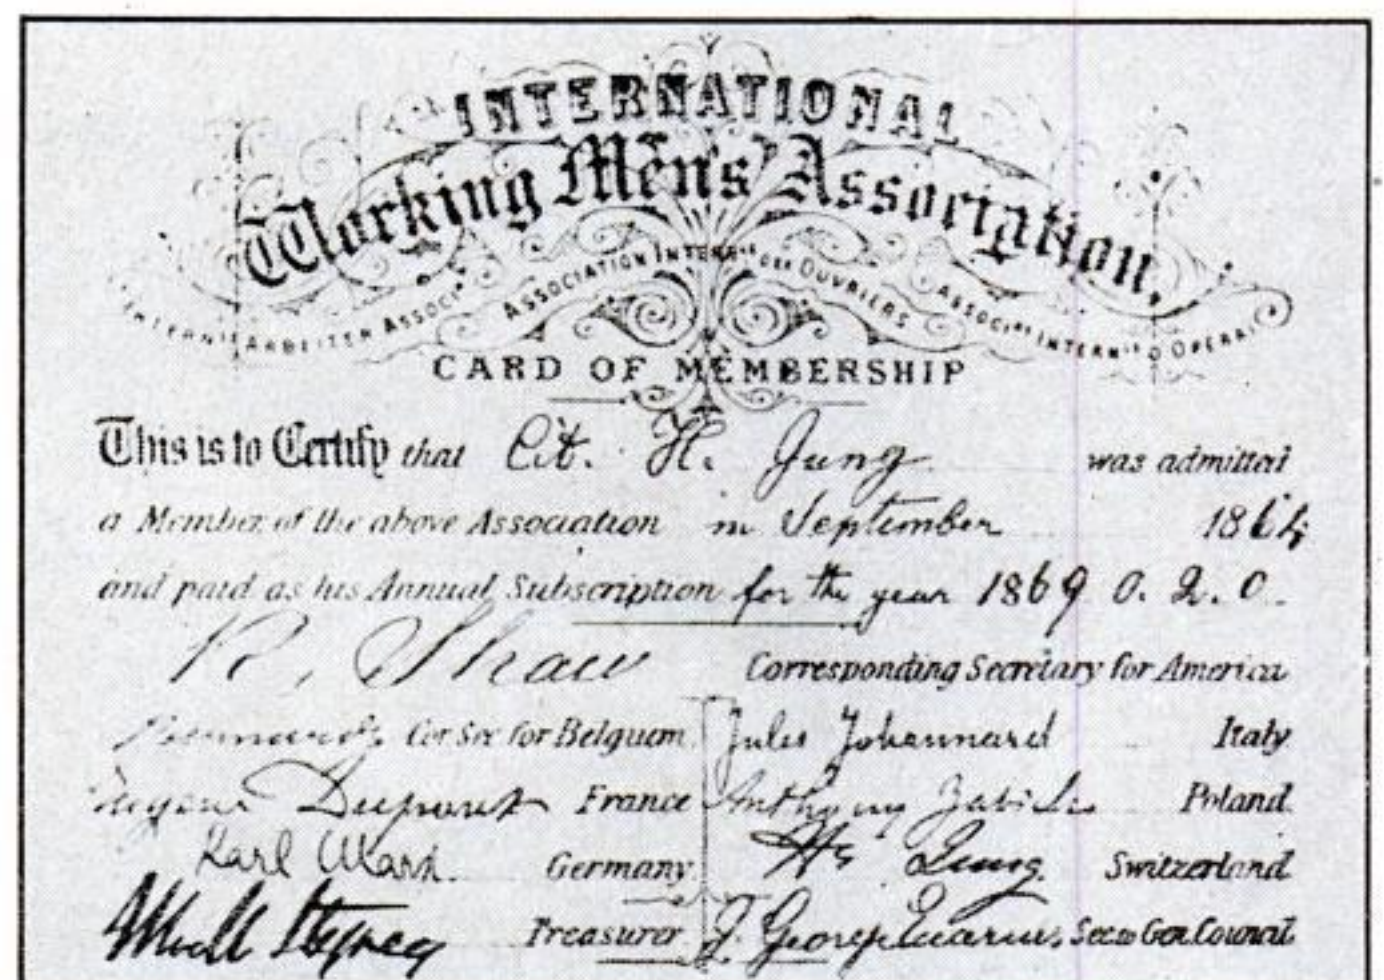 INTERNATIONAL
Working Men's Association,
INTERN^LE ARBEITER ASSOCI^N
ASSOCIATION INTERN^LE DES OUVRIERS
ASSOCI^NE INTERN^LE D OPERAI
CARD OF MEMBERSHIP
This is to Certify that Cit. H. Jung was admitted
a Member of the above Association in September 1864
and paid as his Annual Subscription for the year 1869 0. 2. 0.
R. Shaw Corresponding Secretary for America
Bernard Cor Sec for Belgium. Jules Johannard Italy
Eugene Dupont France Anthony Zabicki Poland
Karl Marx. Germany. H^n Jung. Switzerland
Cowell Stepney Treasurer J. George Eccarius, Sec to Gen. Council